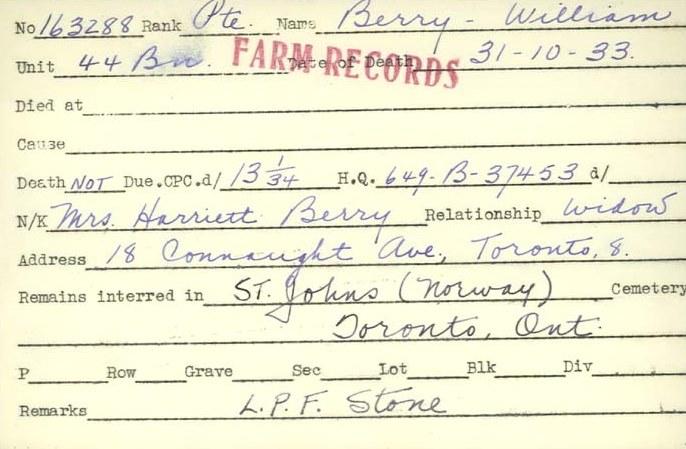 No 163288 Rank Pte. Name Berry - William
Unit 44 Bn. FARM RECORDS Date of Death 31-10-33.
Died at
Cause
Death NOT Due.CPC.d/ 13 1/34 H.Q. 649-B-37453 d/
N/K Mrs. Harriett Berry Relationship widow
Address 18 Connaught Ave, Toronto, 8.
Remains interred in ST. Johns (Norway) Cemetery
Toronto, Ont.
P Row Grave Sec Lot Blk Div
Remarks L.P.F. Stone